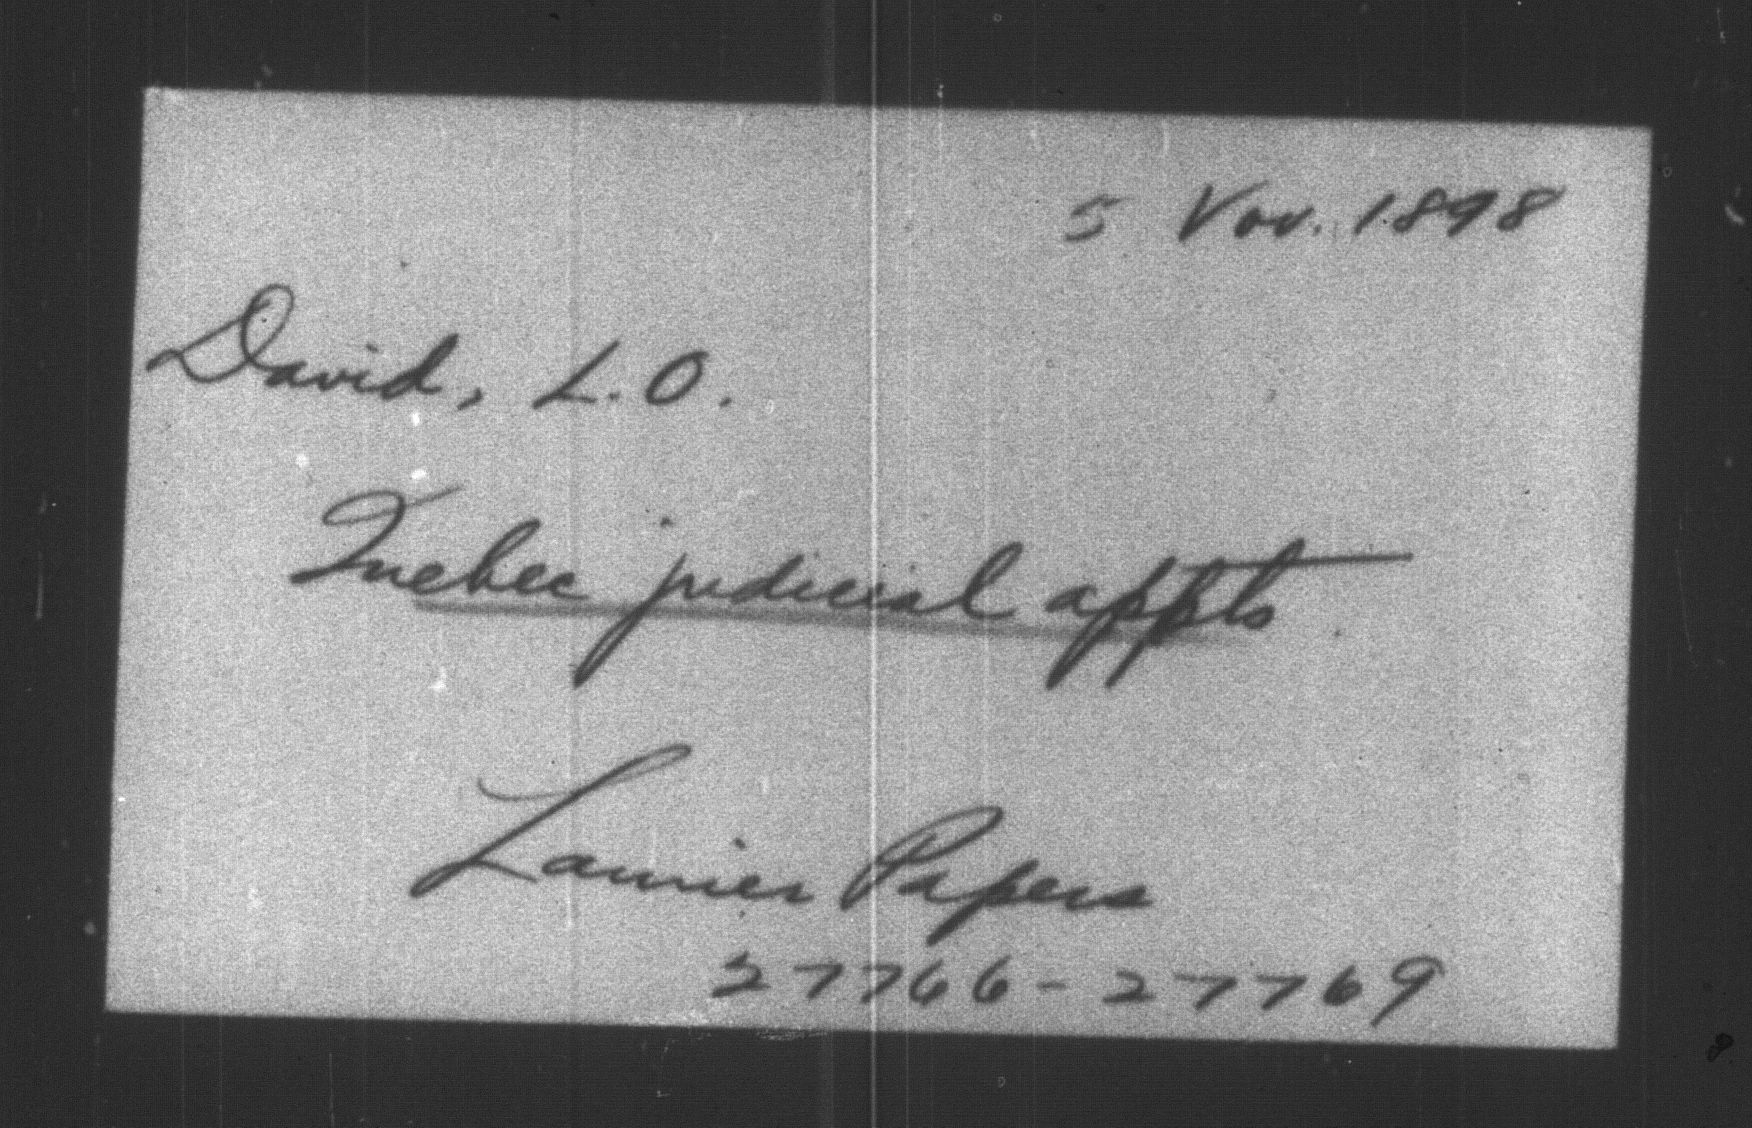 5 Nov. 1898
David, L.O.
Quebec judicial appts
Laurier Papers
27766-27769